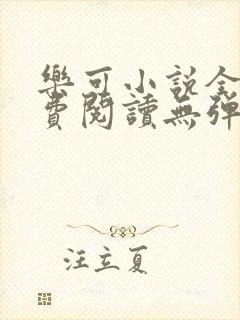 樂可小說全
費閱讀無彈
汪立夏